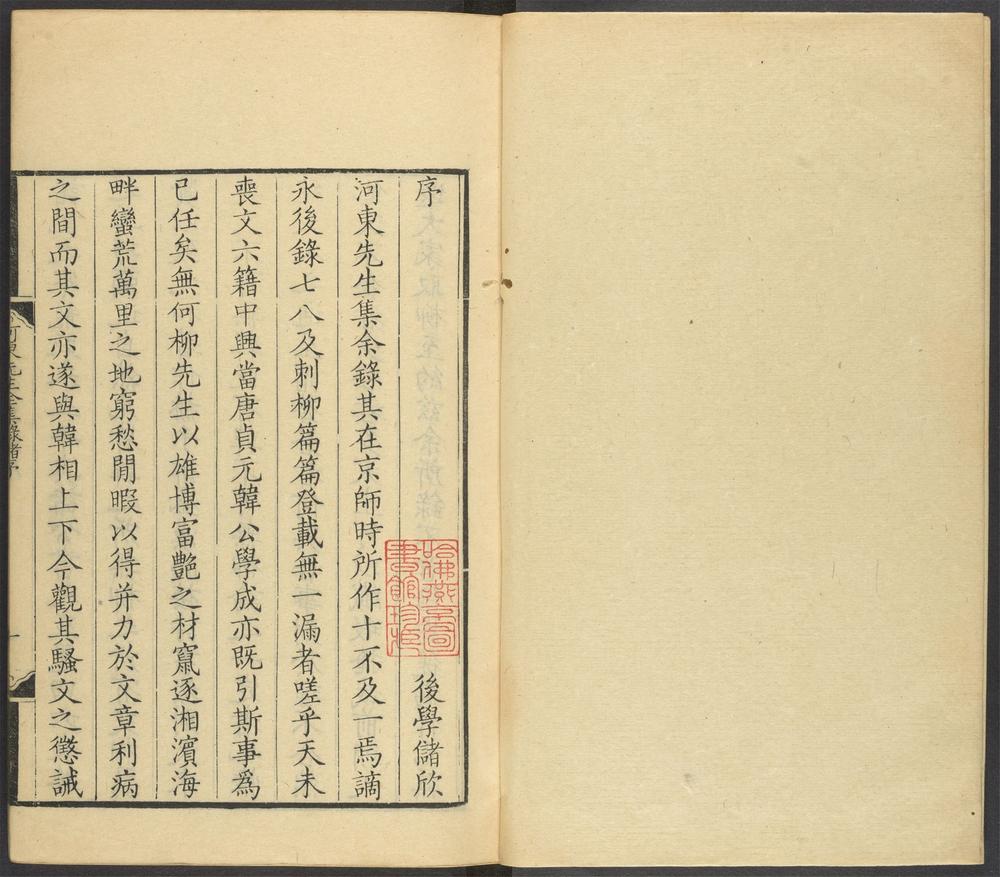 序 後學儲欣
河東先生集余錄其在京師時所作十不及一焉謫
永後錄七八及刺柳篇篇登載無一漏者嗟乎天未
喪文六籍中興當唐貞元韓公學成亦既引斯事爲
已任矣無何柳先生以雄博富艷之材竄逐湘濱海
畔蠻荒萬里之地窮愁閒暇以得并力於文章利病
之間而其文亦遂與韓相上下今觀其騷文之懲誡
河東先生全集錄諸序
一
哈佛燕京圖書館珍藏